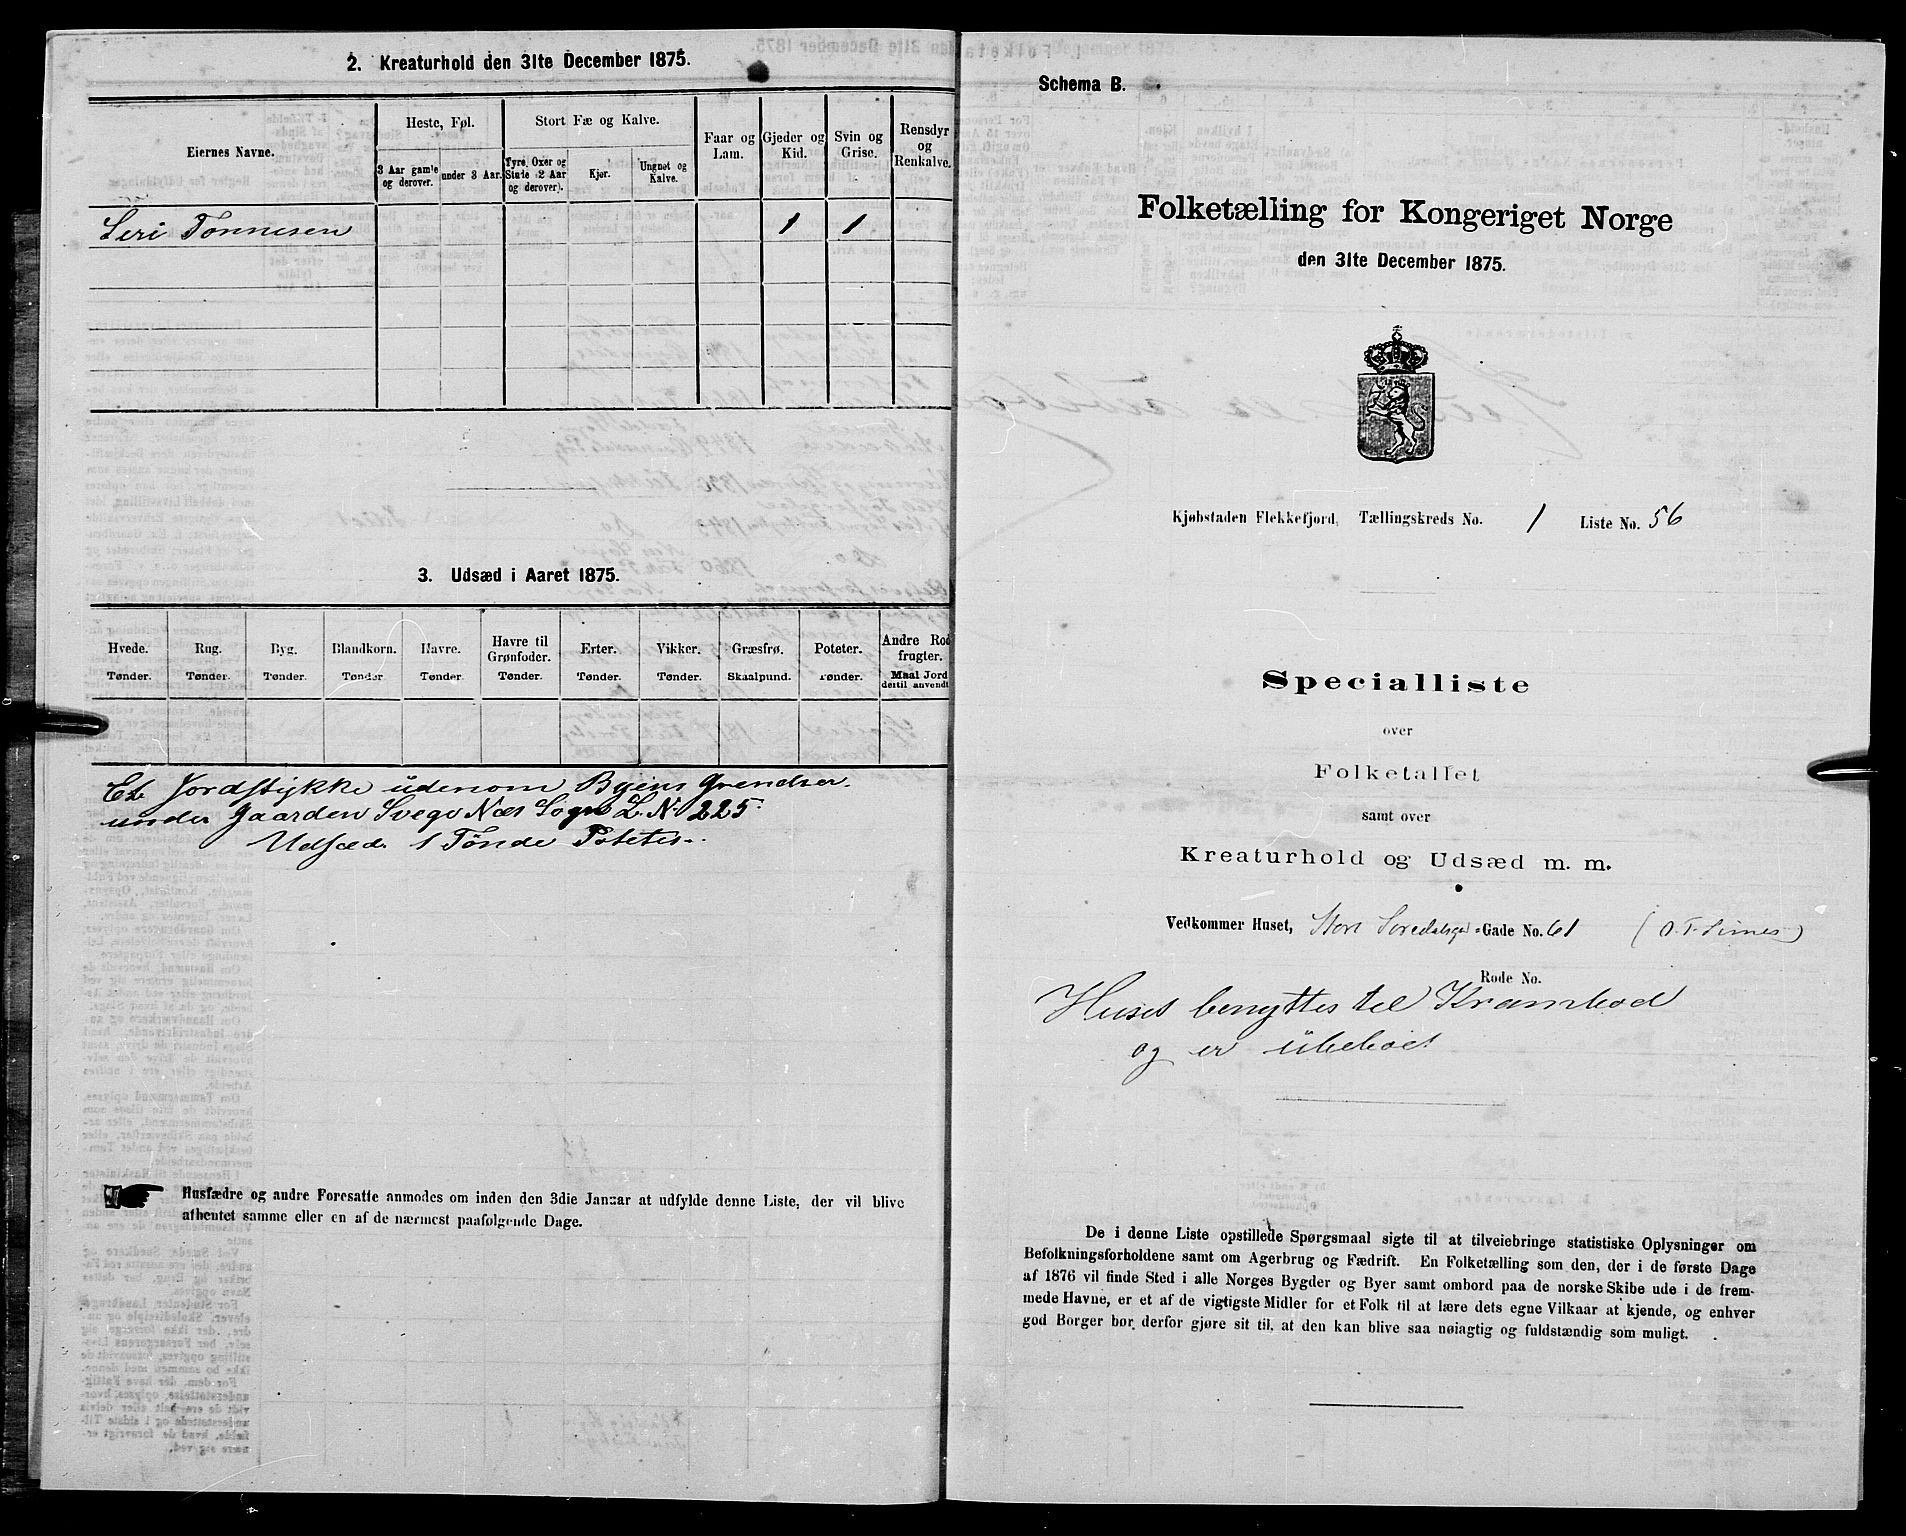 2. Kreaturhold den 31te December 1875.
Eiernes Navne.
Heste, Føl.
3 Aar gamle og derover.
under 3 Aar.
Stort Fæ og Kalve.
Tyre, Oxer og Stude (2 Aar og derover).
Kjør.
Ungnøt og Kalve.
Faar og Lam.
Gjeder og Kid.
Svin og Grise.
Rensdyr og Renkalve.
Siri Tønnesen 1 1
3. Udsæd i Aaret 1875.
Hvede. Rug. Byg. Blandkorn. Havre. Havre til Grønfoder. Erter. Vikker. Græsfrø. Poteter. Andre Rodfrugter.
Tønder. Tønder. Tønder. Tønder. Tønder. Tønder. Tønder. Tønder. Skaalpund. Tønder. Maal Jord dertil anvendt.
Et Jordstykke udenom Byens Grendser
under Gaarden Svege Næs Sogn L. No 225.
Udsæd 1 Tønde Poteter.
Husfædre og andre Foresatte anmodes om inden den 3die Januar at udfylde denne Liste, der vil blive
afhentet samme eller en af de nærmest paafølgende Dage.
Schema B.
Folketælling for Kongeriget Norge
den 31te December 1875.
Kjøbstaden Flekkefjord, Tællingskreds No. 1 Liste No. 56
Specialliste
over
Folketallet
samt over
Kreaturhold og Udsæd m. m.
Vedkommer Huset, Gade No. 61
Rode No.
Huset benyttes til Krambod
og er ubeboet
De i denne Liste opstillede Spørgsmaal sigte til at tilveiebringe statistiske Oplysninger om
Befolkningsforholdene samt om Agerbrug og Fædrift. En Folketælling som den, der i de første Dage
af 1876 vil finde Sted i alle Norges Bygder og Byer samt ombord paa de norske Skibe ude i de frem-
mede Havne, er et af de vigtigste Midler for et Folk til at lære dets egne Vilkaar at kjende, og enhver
god Borger bør derfor gjøre sit til, at den kan blive saa nøiagtig og fuldstændig som muligt.